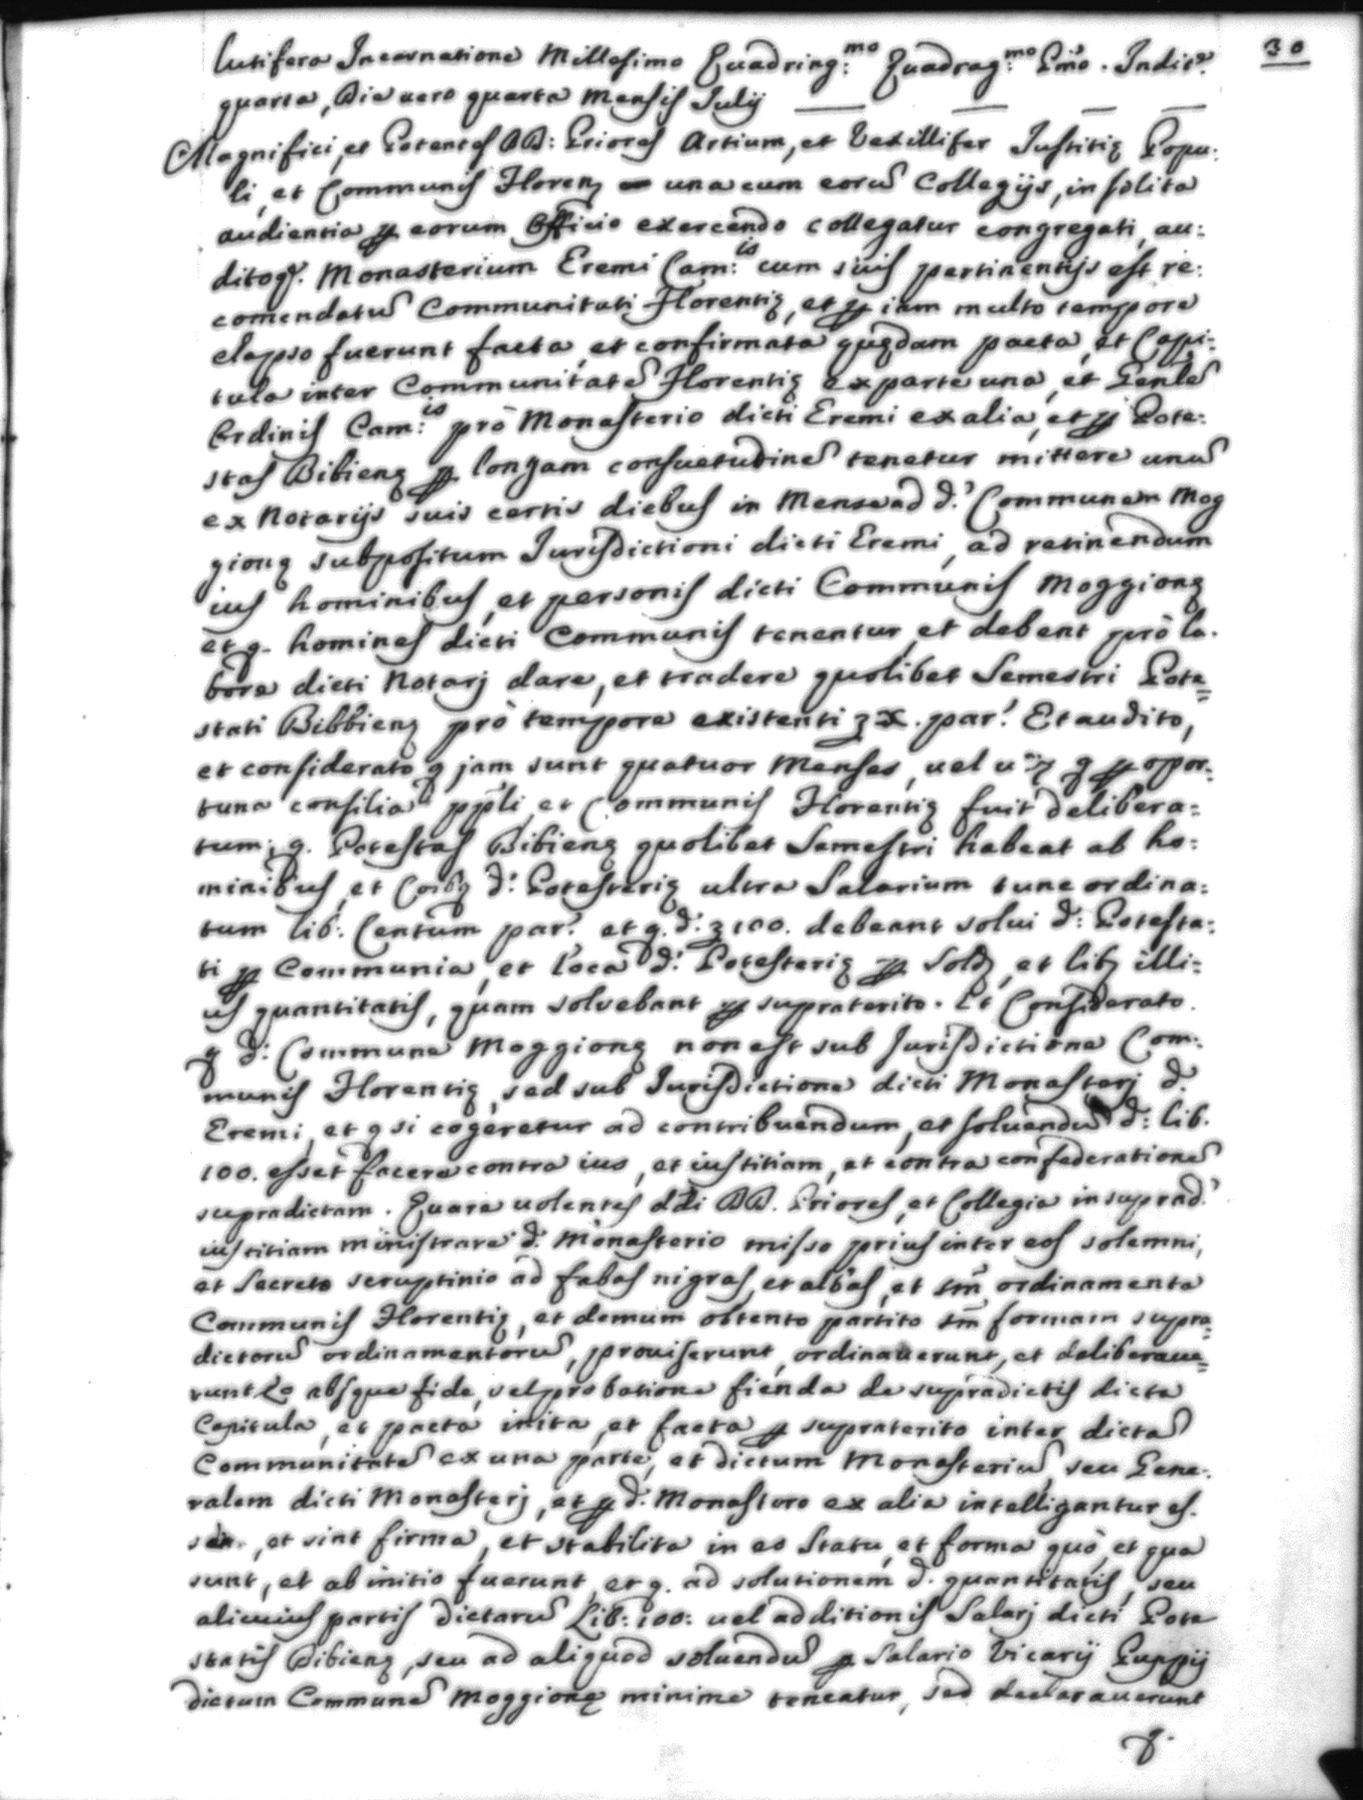 30
lutifera Incarnatione Millesimo Quadring:mo Quadrag:mo Pmo. Indict.e
quarta, Die uero quarta Mensis Julij
Magnifici, et Potentes DD: Priores Artium, et Vexillifer Iustitię Popu:
li, et Communis Florenę una cum eorũ Collegijs, in solita
audientia ꝑ eorum Officio exercendo collegatur congregati, au:
ditoq. Monasterium Eremi Cam:is cum suis pertinentijs est re:
comendatũ Communitati Florentię, et ꝑ iam multo tempore
elapso fuerunt facta, et confirmata quędam pacta, et Capi:
tula inter Communitatẽ Florentię ex parte una, et Genlẽ
Ordinis Cam:is prò Monasterio dicti Eremi ex alia, et ꝑ Pote:
stas Bibienę ꝑ longam consuetudinẽ tenetur mittere unũ
ex Notarijs suis certis diebus in Mense ad d.' Communem Mog
gionę subpositum Jurisdictioni dicti Eremi, ad retinendum
ius hominibus, et personis dicti Communis Moggionę
et q. homines dicti Communis tenentur, et debent prò la.
bore dicti Notarj dare, et tradere quolibet Semestri Pote=
stati Bibbienę prò tempore existenti ʒ X. par.! Et audito,
et considerato q jam sunt quatuor Menses, uel q ꝑ opor:
tuna consilia ppli, et Communis Florentię fuit delibera=
tum; q. Potestas Bibienę quolibet Semestri habeat ab ho:
minibus, et d: Potesterię ultra Salarium tunc ordina:
tum lib: Centum par.' et q. d: ʒ 100. debeant solui d: Potesta:
ti ꝑ Communia, et loca d: Potesterię ꝑ Sold, et lib illi=
us quantitatis, quam solvebant ꝑ supraterito. Et Considerato
q d: Commune Moggionę non est sub Jurisdictione Com:
munis Florentię, sed sub Jurisdictione dicti Monasterj d.
Eremi, et q si cogeretur ad contribuendum, et soluendũ d: lib.
100. esset facere contra ius, et iustitiam, et contra confederationẽ
supradictam. Quare uolentes ddi DD. Priores, et Collegia in suprad.'
iustitiam ministrare d: Monasterio misso prius inter eos solemni,
et Secreto scruptinio ad fabas nigras, et albas, et sm̃ ordinamenta
Communis Florentię, et demum obtento partito sm̃ formam supra=
dictorũ ordinamentorũ, prouiserunt, ordinauerunt, et deliberaue=
runt absque fide, vel probatione fienda de supradictis dicta
Capitula, et pacta inita, et facta ꝑ supraterito inter dictã
Communitatẽ ex una parte, et dictum Monasteriũ, seu Gene:
ralem dicti Monasterj, et ꝑ d: Monastero ex alia intelligantur es.
se, et sint firma, et stabilita in eo Statu, et forma quò, et qua
sunt, et ab initio fuerunt, et q. ad solutionem d. quantitatis, seu
alicuius partis dictarũ Lib: 100: uel additionis Salarj dicti Pote
statis Bibienę, seu ad aliquod soluendũ ꝑ Salario Vicarij Puppij
dictum Communẽ Moggionę minime teneatur, sed declarauerunt
q.